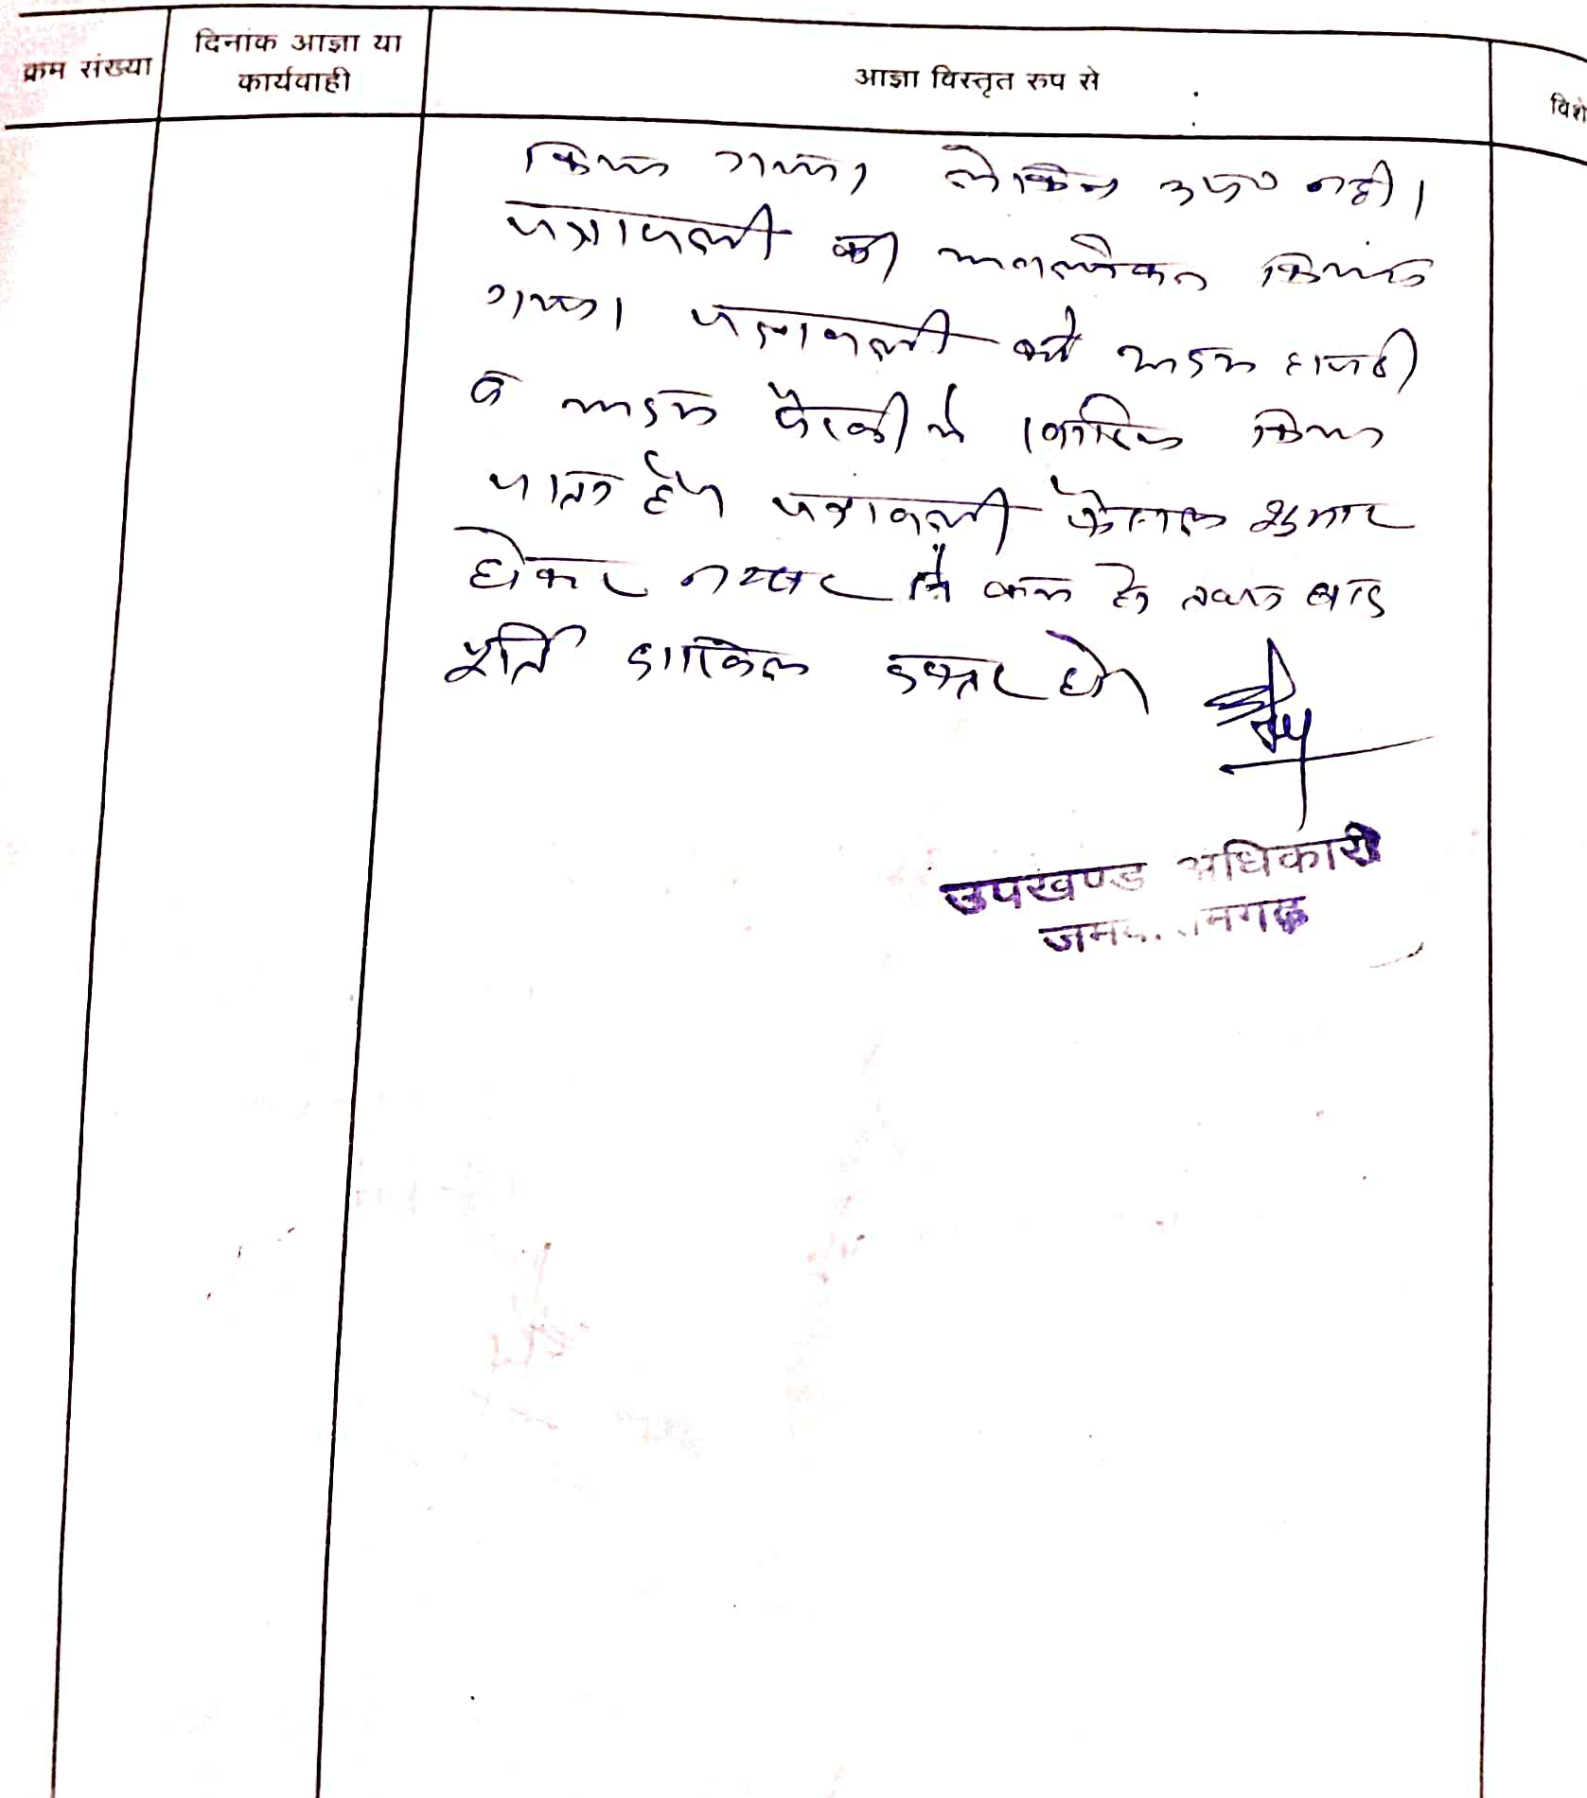 क्रम संख्या
दिनांक आज्ञा या
कार्यवाही
आज्ञा विस्तृत रूप से
विशे
किया गया। लेकिन उप० नही।
पत्रावली का अवलोकन किया
गया। पत्रावली को अदम हाजरी
व अदम पैरवी मे खारिज किया
जाता है। पत्रावली फैसल शुमार
होकर नम्बर से कम हो बाद
पूर्ति दाखिल दफ्तर हो।
उपखण्ड अधिकारी